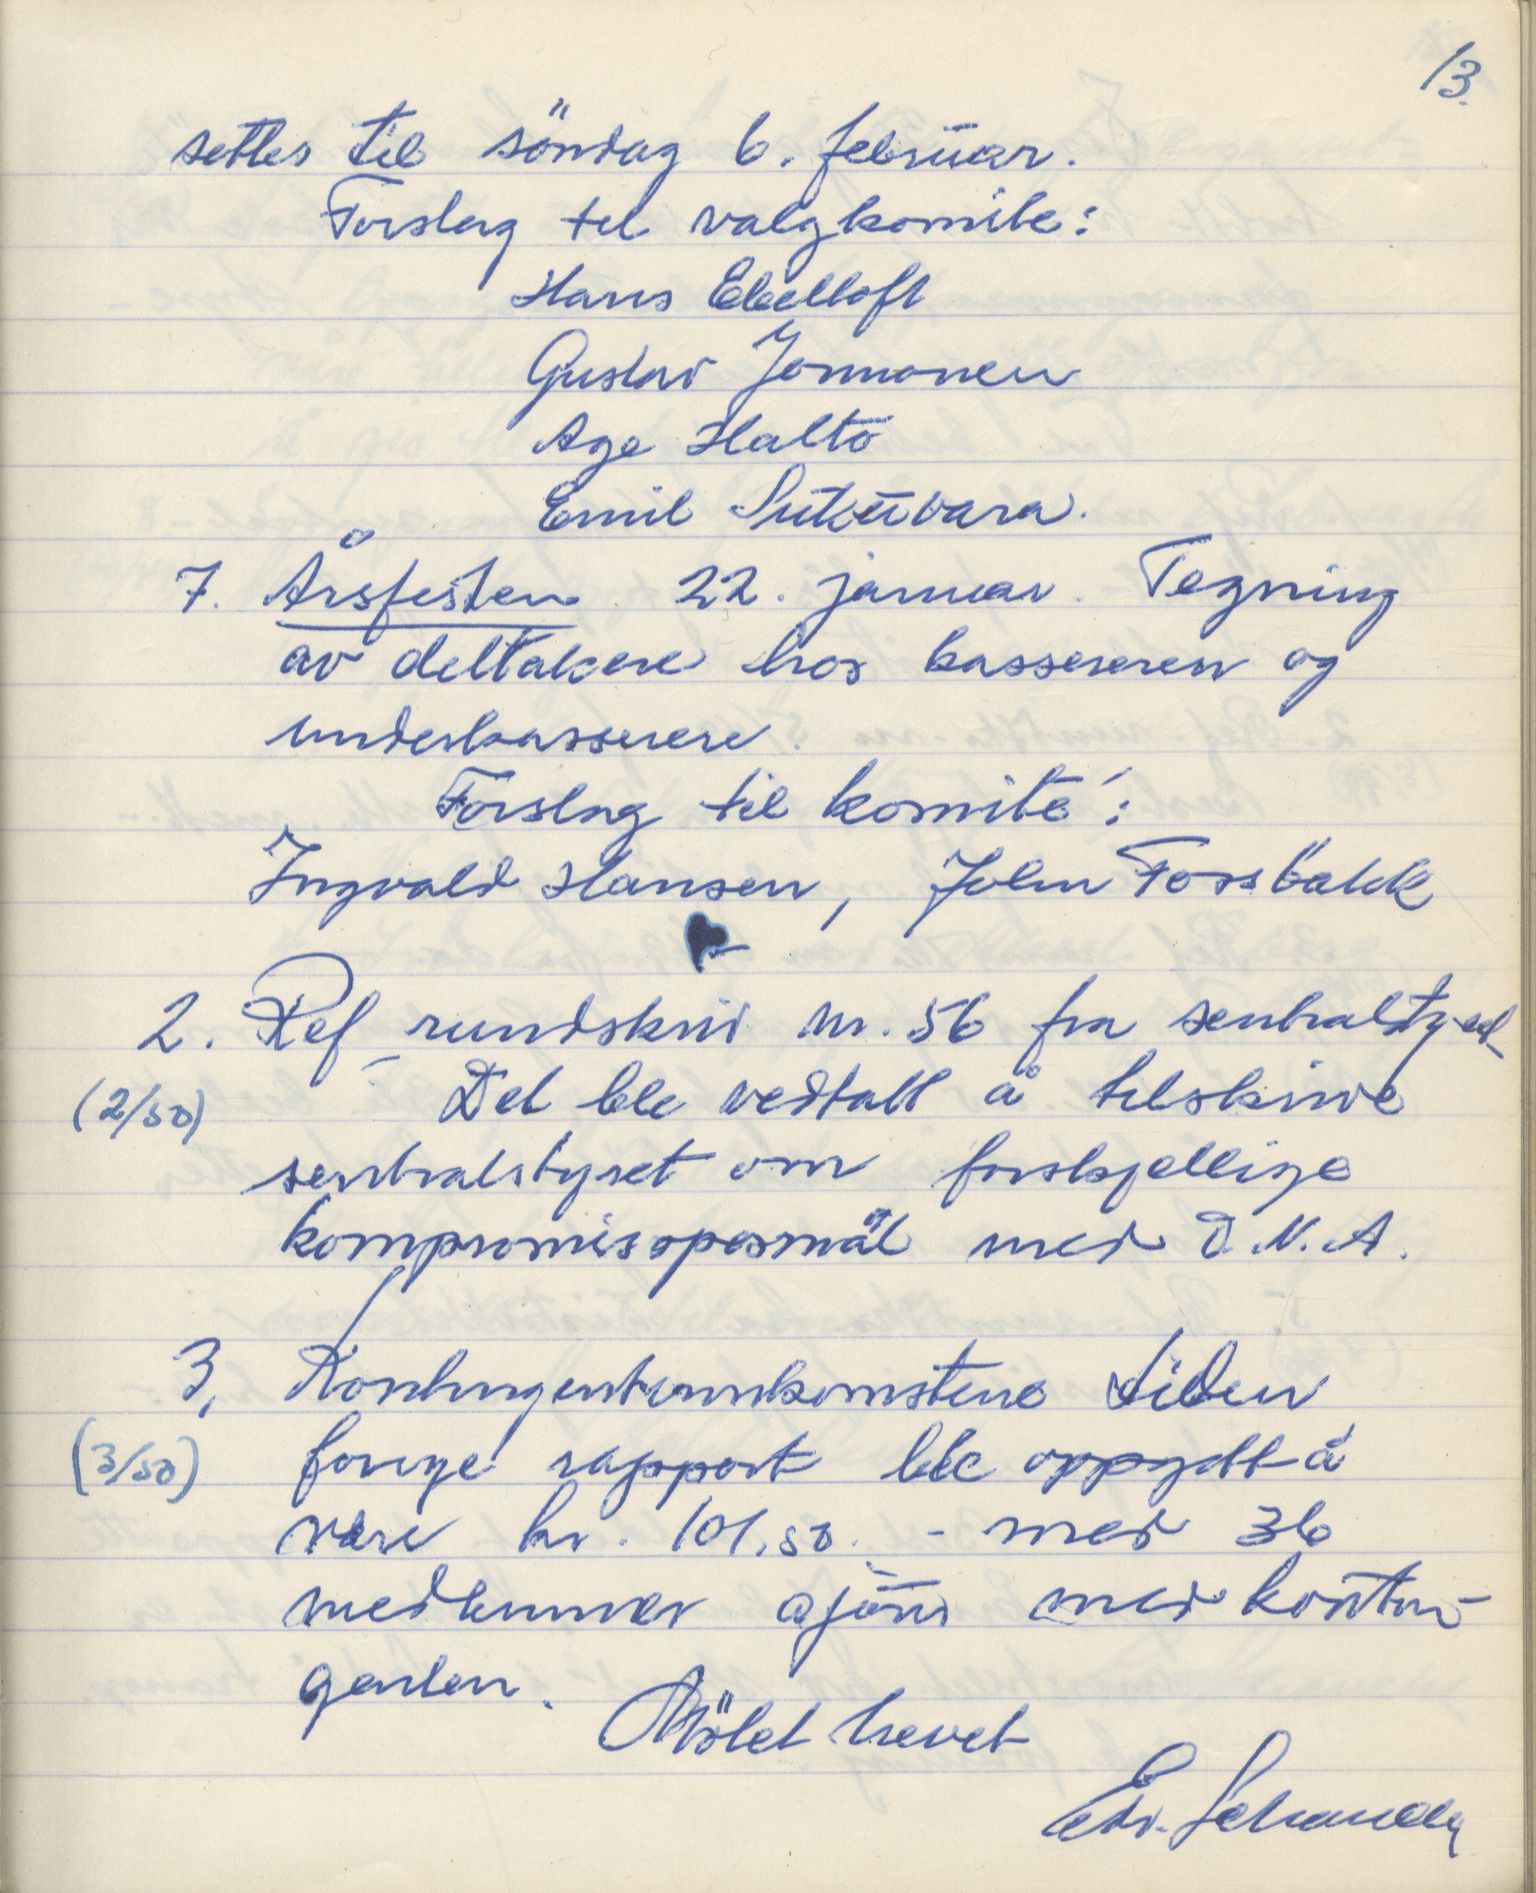 13.
settes til söndag 6. februar.
Forslag til valgkomite:
Hans Ebeltoft
Gustav Jonmonen
Age Halto
Emil Sukuvara.
7. Årsfesten 22. januar. Tegning
av deltakere hos kassereren og
underkasserere.
Forslag til komité:
Ingvald Hansen, John Fossbakk
2. Ref. rundskriv nr. 56 fra sentralstyret
(2/50) Det ble vedtatt å tilskrive
sentralstyret om forskjellige
kompromisspørsmål med D.N.A.
3. Kontingentinnkomstene siden
(3/50) forrige rapport ble oppgitt å
være kr. 101.50. - med 36
medlemmer ajour med kontin-
genten.
Mötet hevet
Edv.